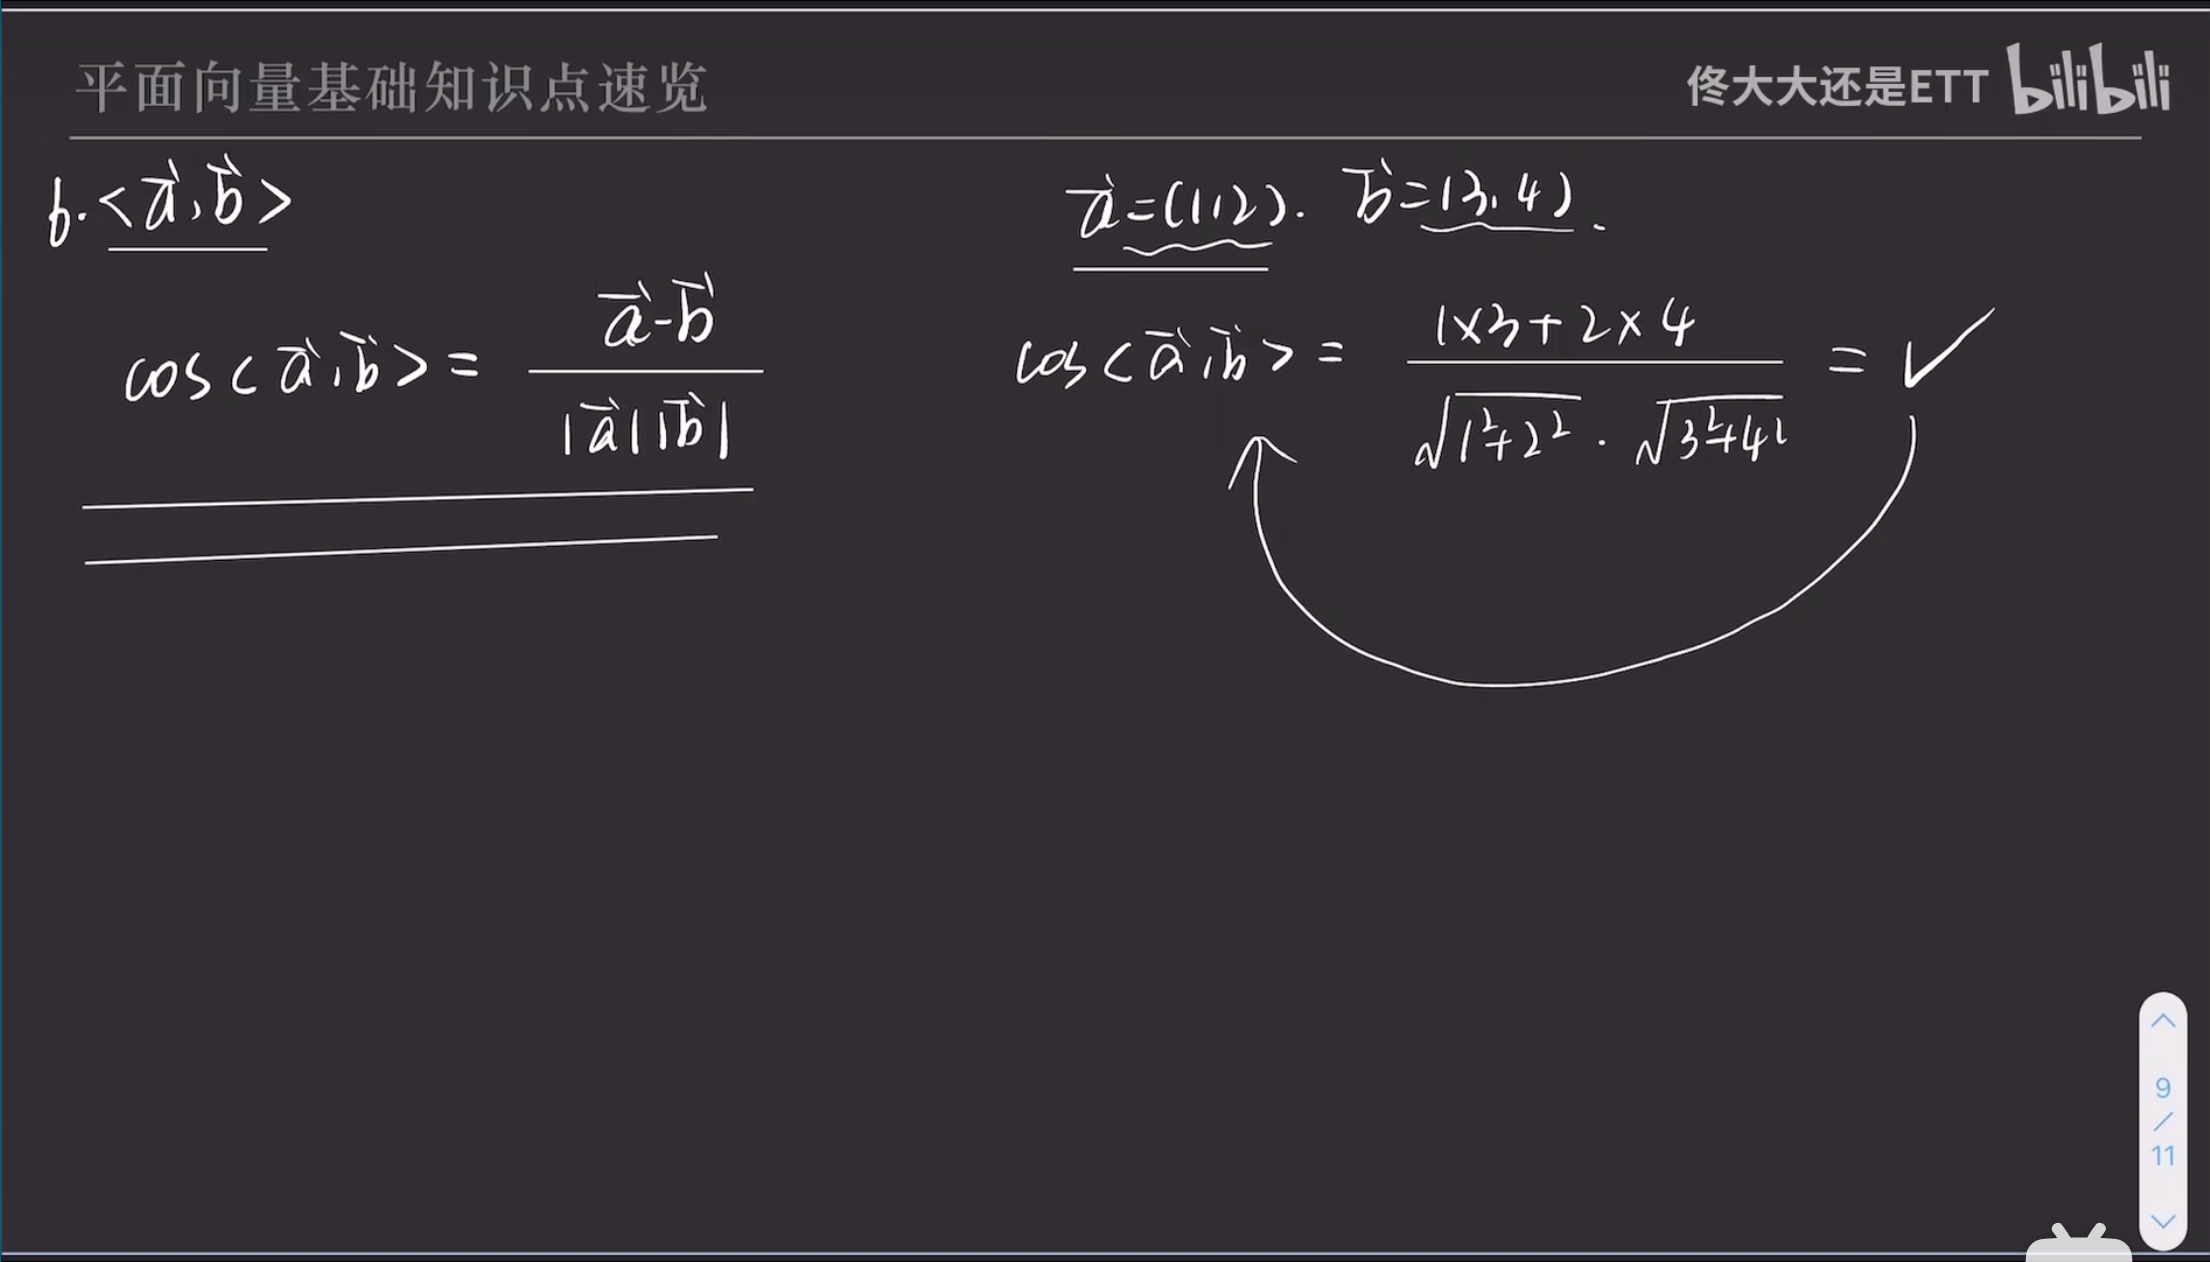 平面向量基础知识点速览
佟大大还是ETT bilibili
6. <a⃗, b⃗>
a⃗=(1,2). b⃗=(3,4).
cos<a⃗,b⃗> = a⃗·b⃗ / |a⃗||b⃗|
cos<a⃗,b⃗> = 1×3+2×4 / √1²+2² · √3²+4² = ✓
9
/
11